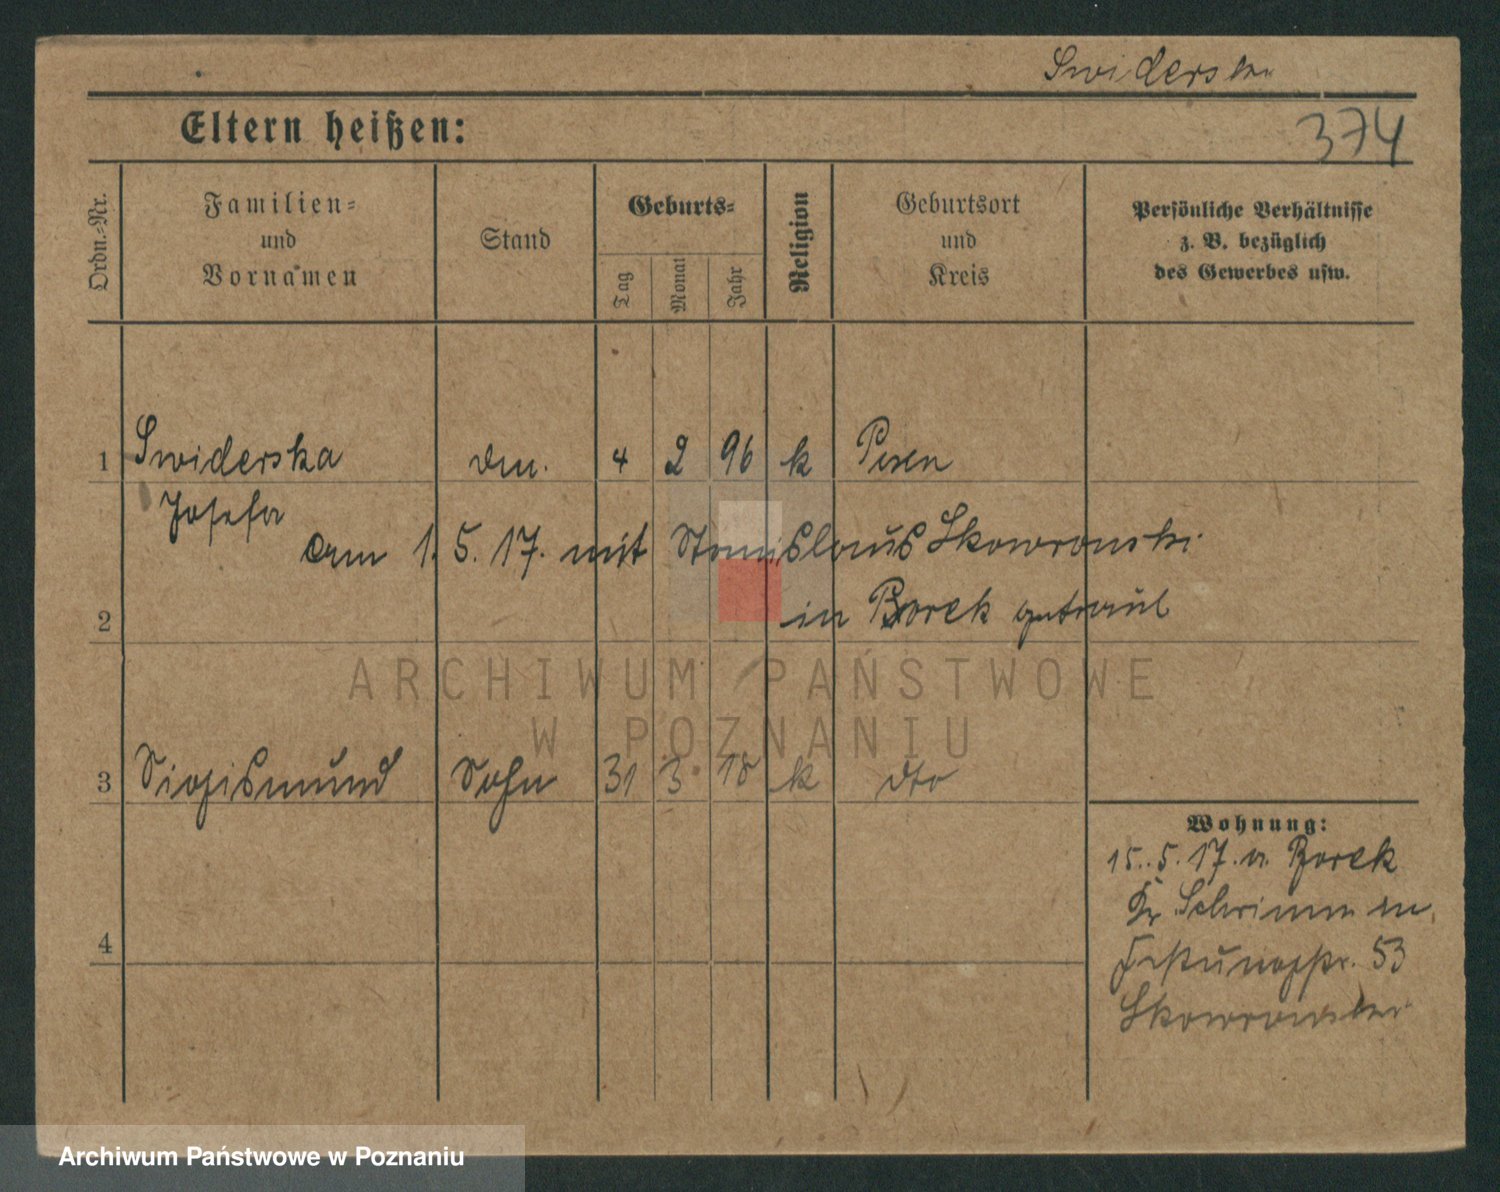 Swiderska
374
Eltern heißen:
Ordn.-Nr.
Familien-
und
Vornamen
Stand
Geburts-
Tag
Monat
Jahr
Religion
Geburtsort
und
Kreis
Persönliche Verhältnisse
z. B. bezüglich
des Gewerbes usw.
1 Swiderska 4 2 96 k Posen
Josefa
am 1. 5. 17. mit Stanislaus Skowronski
in Borek getraut
2
ARCHIWUM PAŃSTWOWE
W POZNANIU
3 Sigismund Sohn 31 3. 18 k dto
Wohnung:
15. 5. 17. n. Borek
Kr. Schrimm
Festungsstr. 53
Skowronski
4
Archiwum Państwowe w Poznaniu